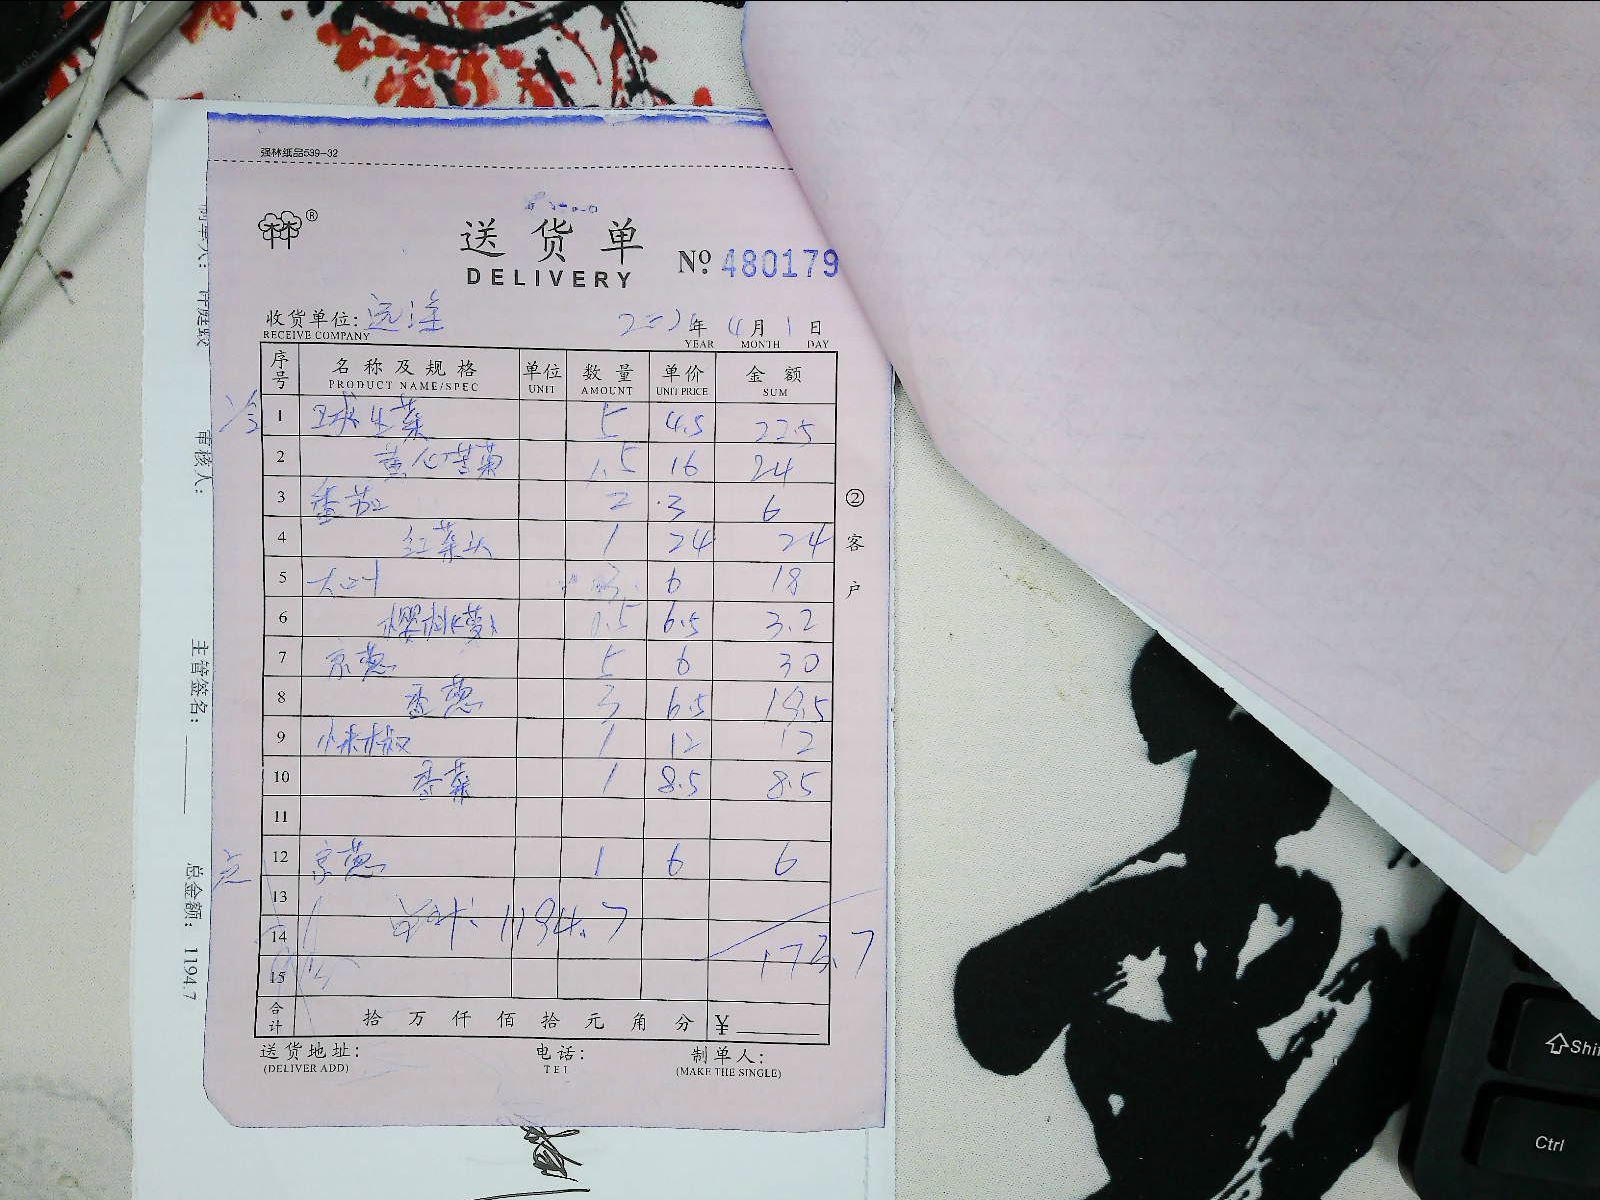 强林纸品539-32
林林®
送货单
DELIVERY
№ 480179
收货单位: 远洋 年 4月 1日
RECEIVE COMPANY YEAR MONTH DAY
序号 名称及规格 单位 数量 单价 金额
PRODUCT NAME/SPEC UNIT AMOUNT UNIT PRICE SUM
冷 1 球生菜 5 4.5 22.5
2 黄心苦菊 1.5 16 24
3 番茄 2 3 6
4 红菜头 1 24 24
5 大叶 3 6 18
6 樱桃萝卜 0.5 6.5 3.2
7 京葱 5 6 30
8 香葱 3 6.5 19.5
9 小米椒 1 12 12
10 香菜 1 8.5 8.5
11
点 12 京葱 1 6 6
13
14 总计: 1194.7 173.7
15
合计 拾 万 仟 佰 拾 元 角 分 ¥
送货地址: 电话: 制单人:
(DELIVER ADD) TEL (MAKE THE SINGLE)
② 客户
审核人:
主管签名:
总金额: 1194.7
Shift
Ctrl